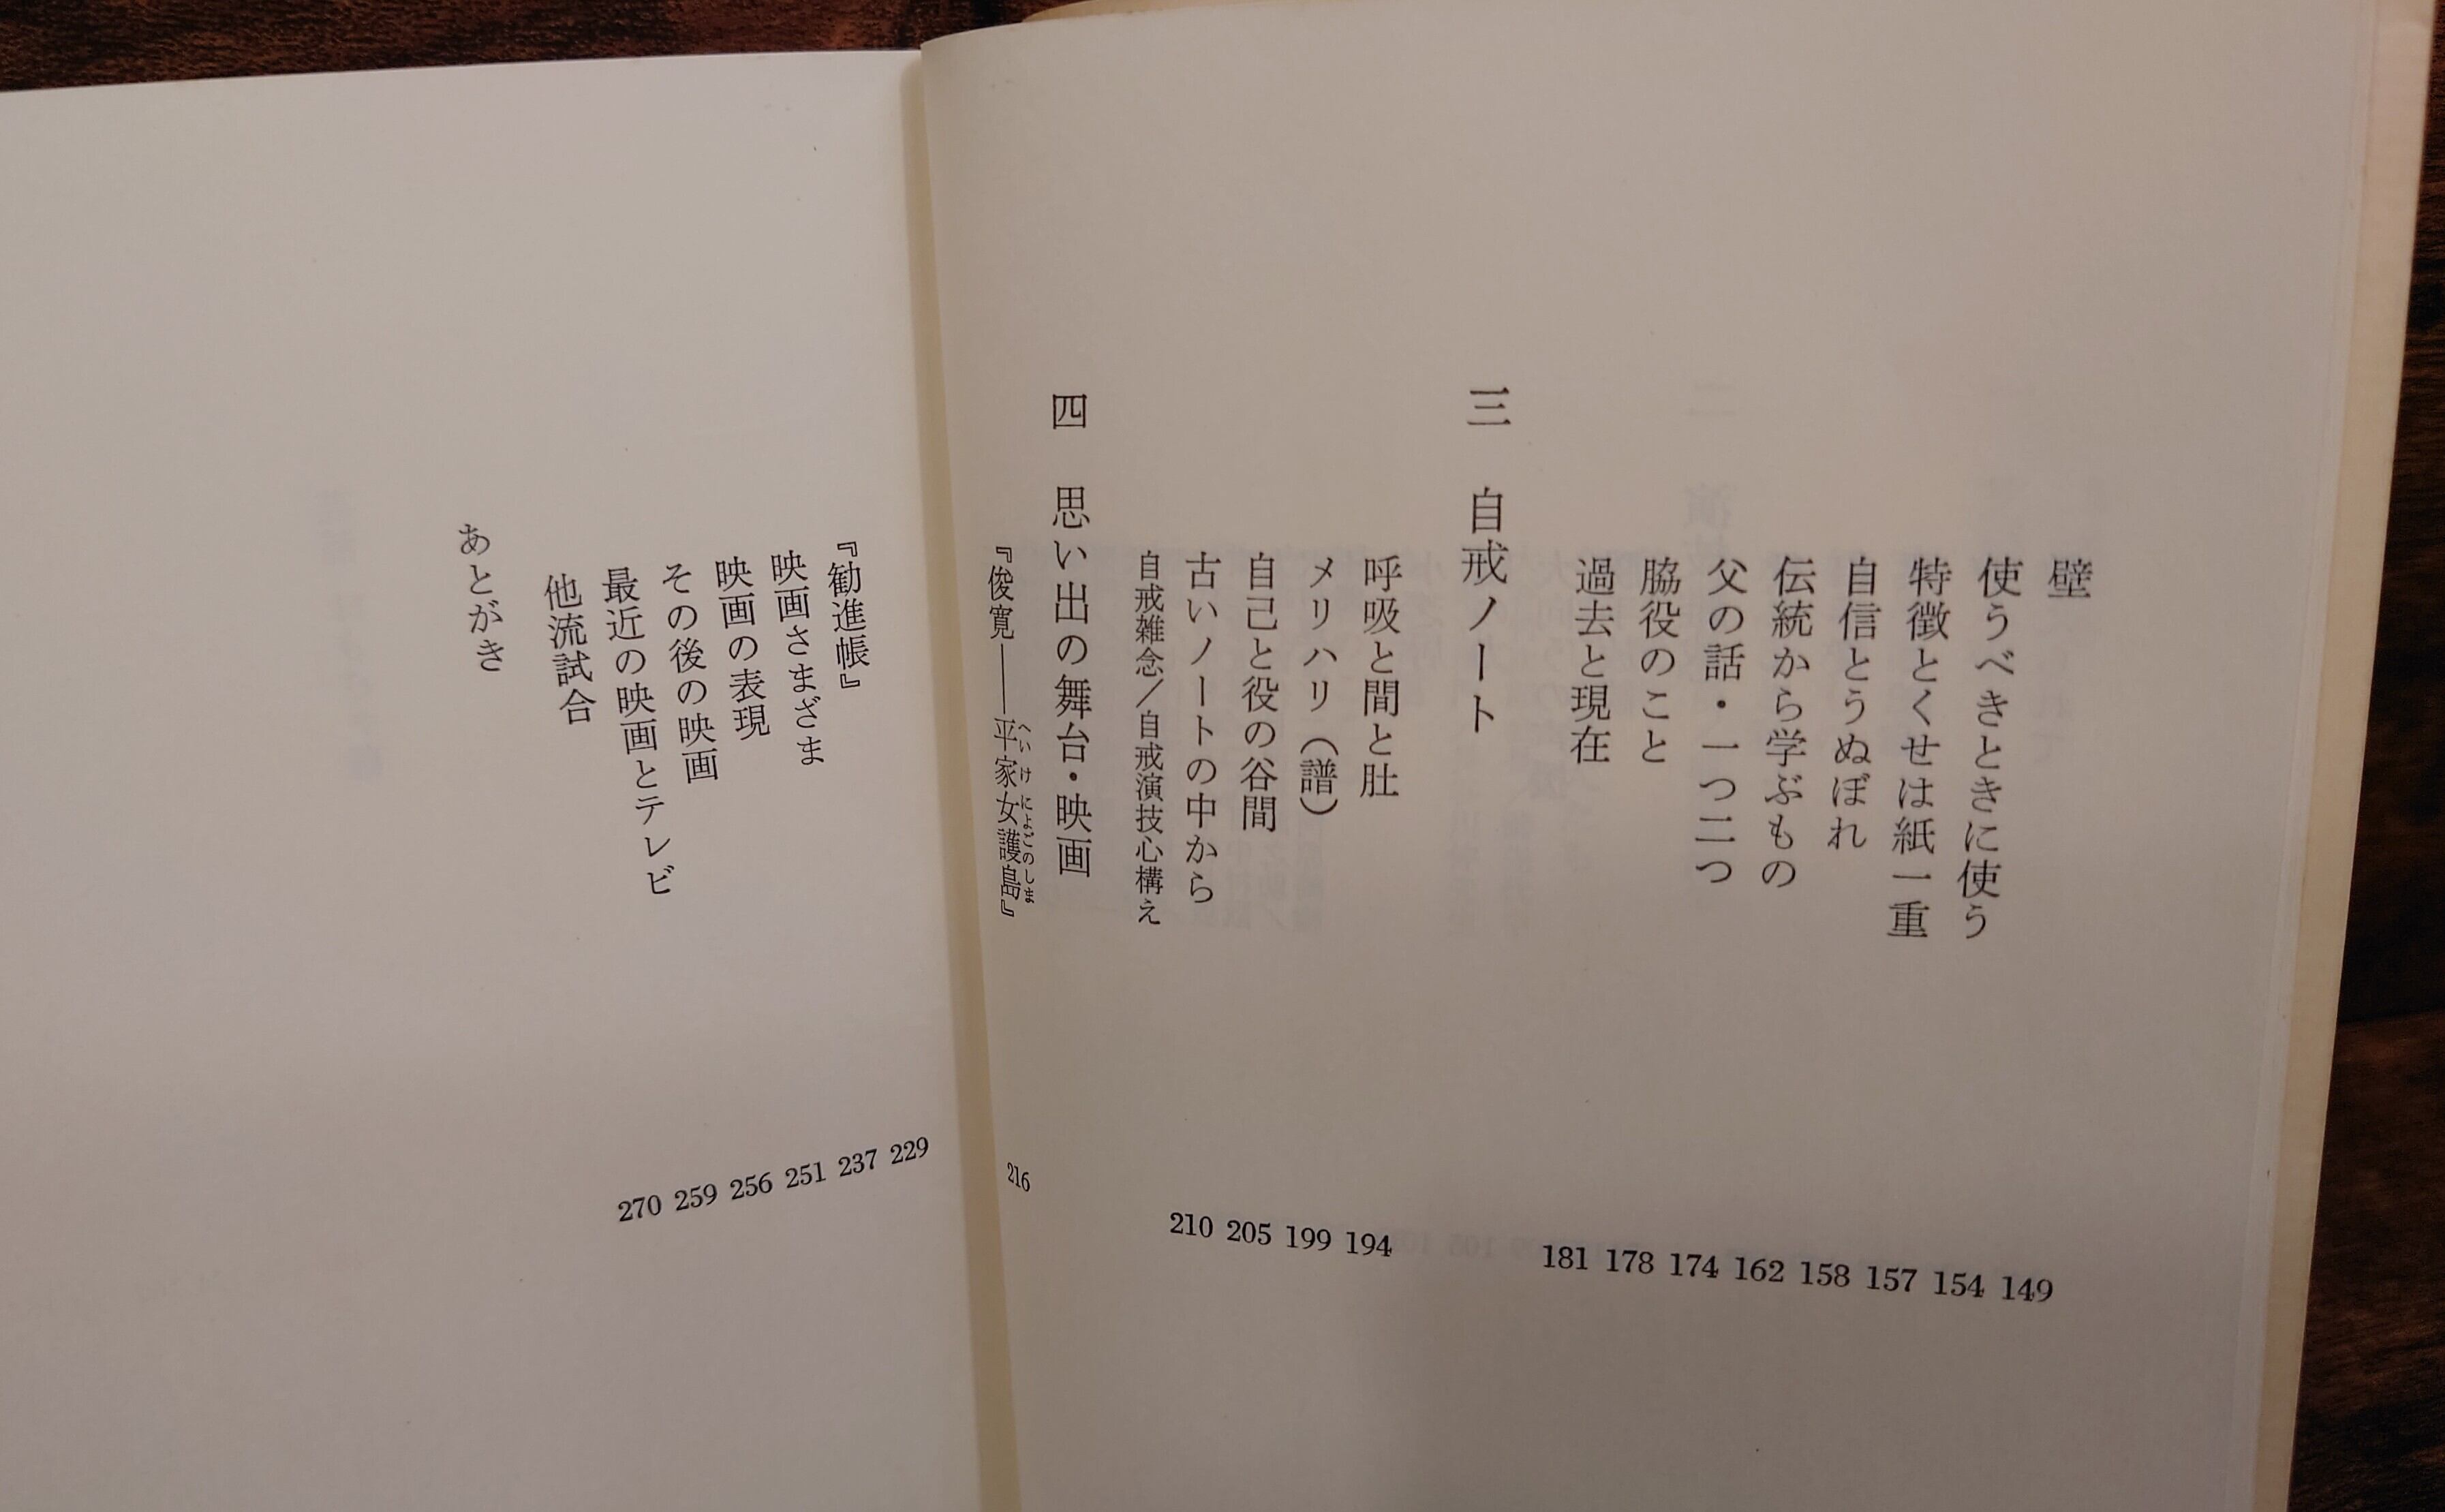 壁
使うべきときに使う
特徴とくせは紙一重
自信とうぬぼれ
伝統から学ぶもの
父の話・一つ二つ
脇役のこと
過去と現在
149
154
157
158
162
174
178
181
三 自戒ノート
呼吸と間と肚
メリハリ（譜）
自己と役の谷間
古いノートの中から
自戒雑念／自戒演技心構え
194
199
205
210
四 思い出の舞台・映画
『俊寛――平家女護島』
へいけ によごのしま
216
『勧進帳』
映画さまざま
映画の表現
その後の映画
最近の映画とテレビ
他流試合
229
237
251
256
259
270
あとがき